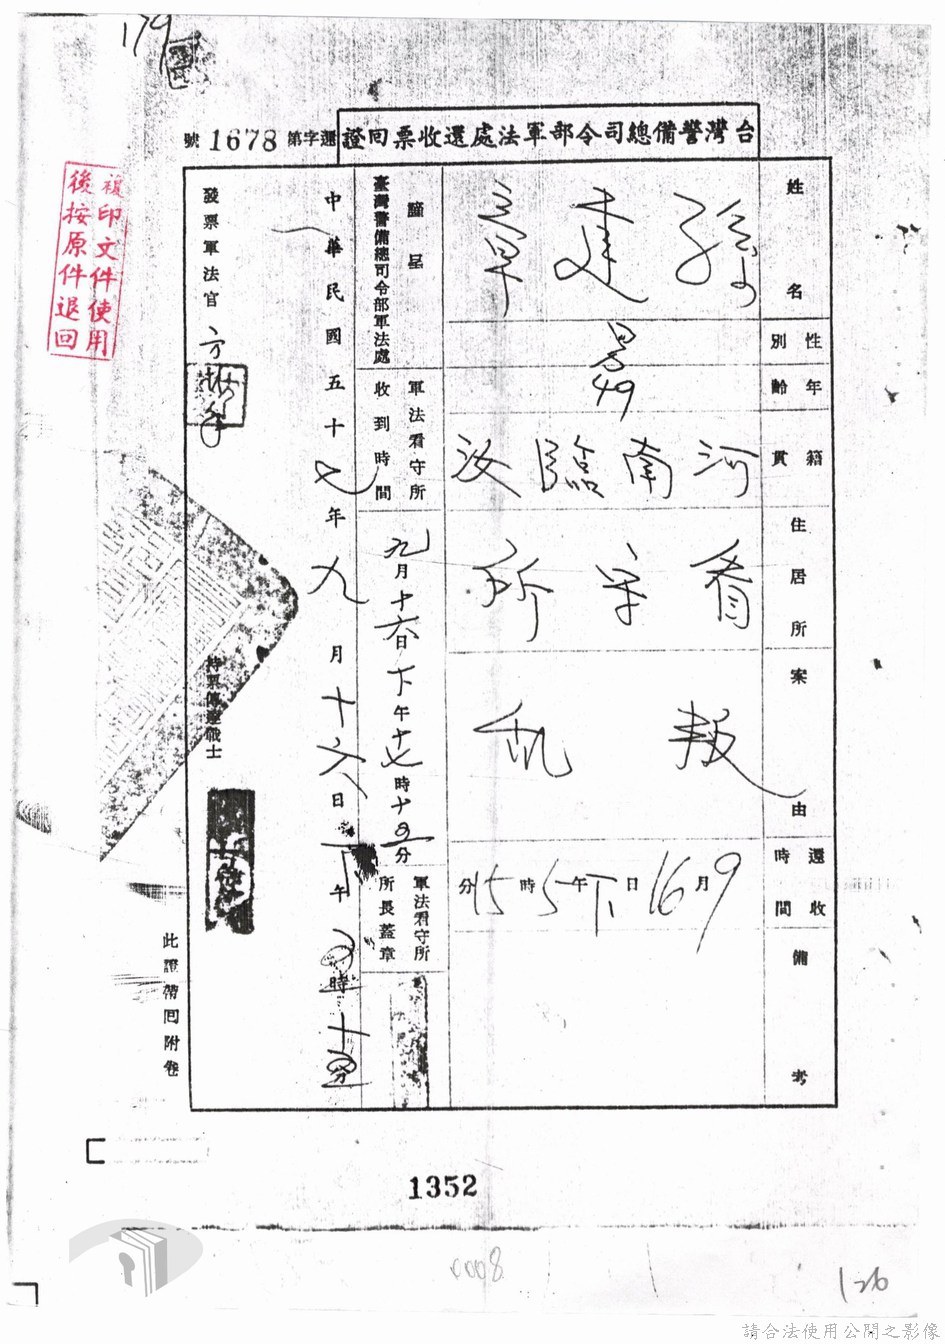 179
台灣警備總司令部軍法處還收票回證
還字第1678號
姓名
孫建章
性別
男
年齡
49
籍貫
河南臨汝
住居所
看守所
案由
叛亂
還收時間
9月16日下午5時15分
備考
謹呈
臺灣警備總司令部軍法處
軍法看守所收到時間
九月十六日下午十七時十五分
軍法看守所所長蓋章
中華民國五十七年九月十六日下午五時十五分
發票軍法官
持票傳達戰士
此證帶回附卷
複印文件使用
後按原件退回
1352
0008
126
請合法使用公開之影像